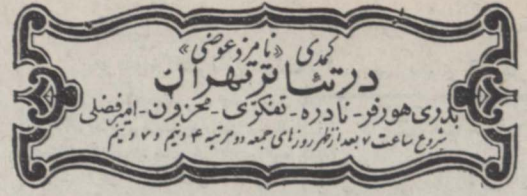 کمدی «نامزد عوضی»
در تئاتر تهران
بدری هورفر - نادره - تفکری - محزون - امیرفضلی
شروع ساعت ۷ بعدازظهر روزهای جمعه دو مرتبه ۴ ونیم و ۷ ونیم